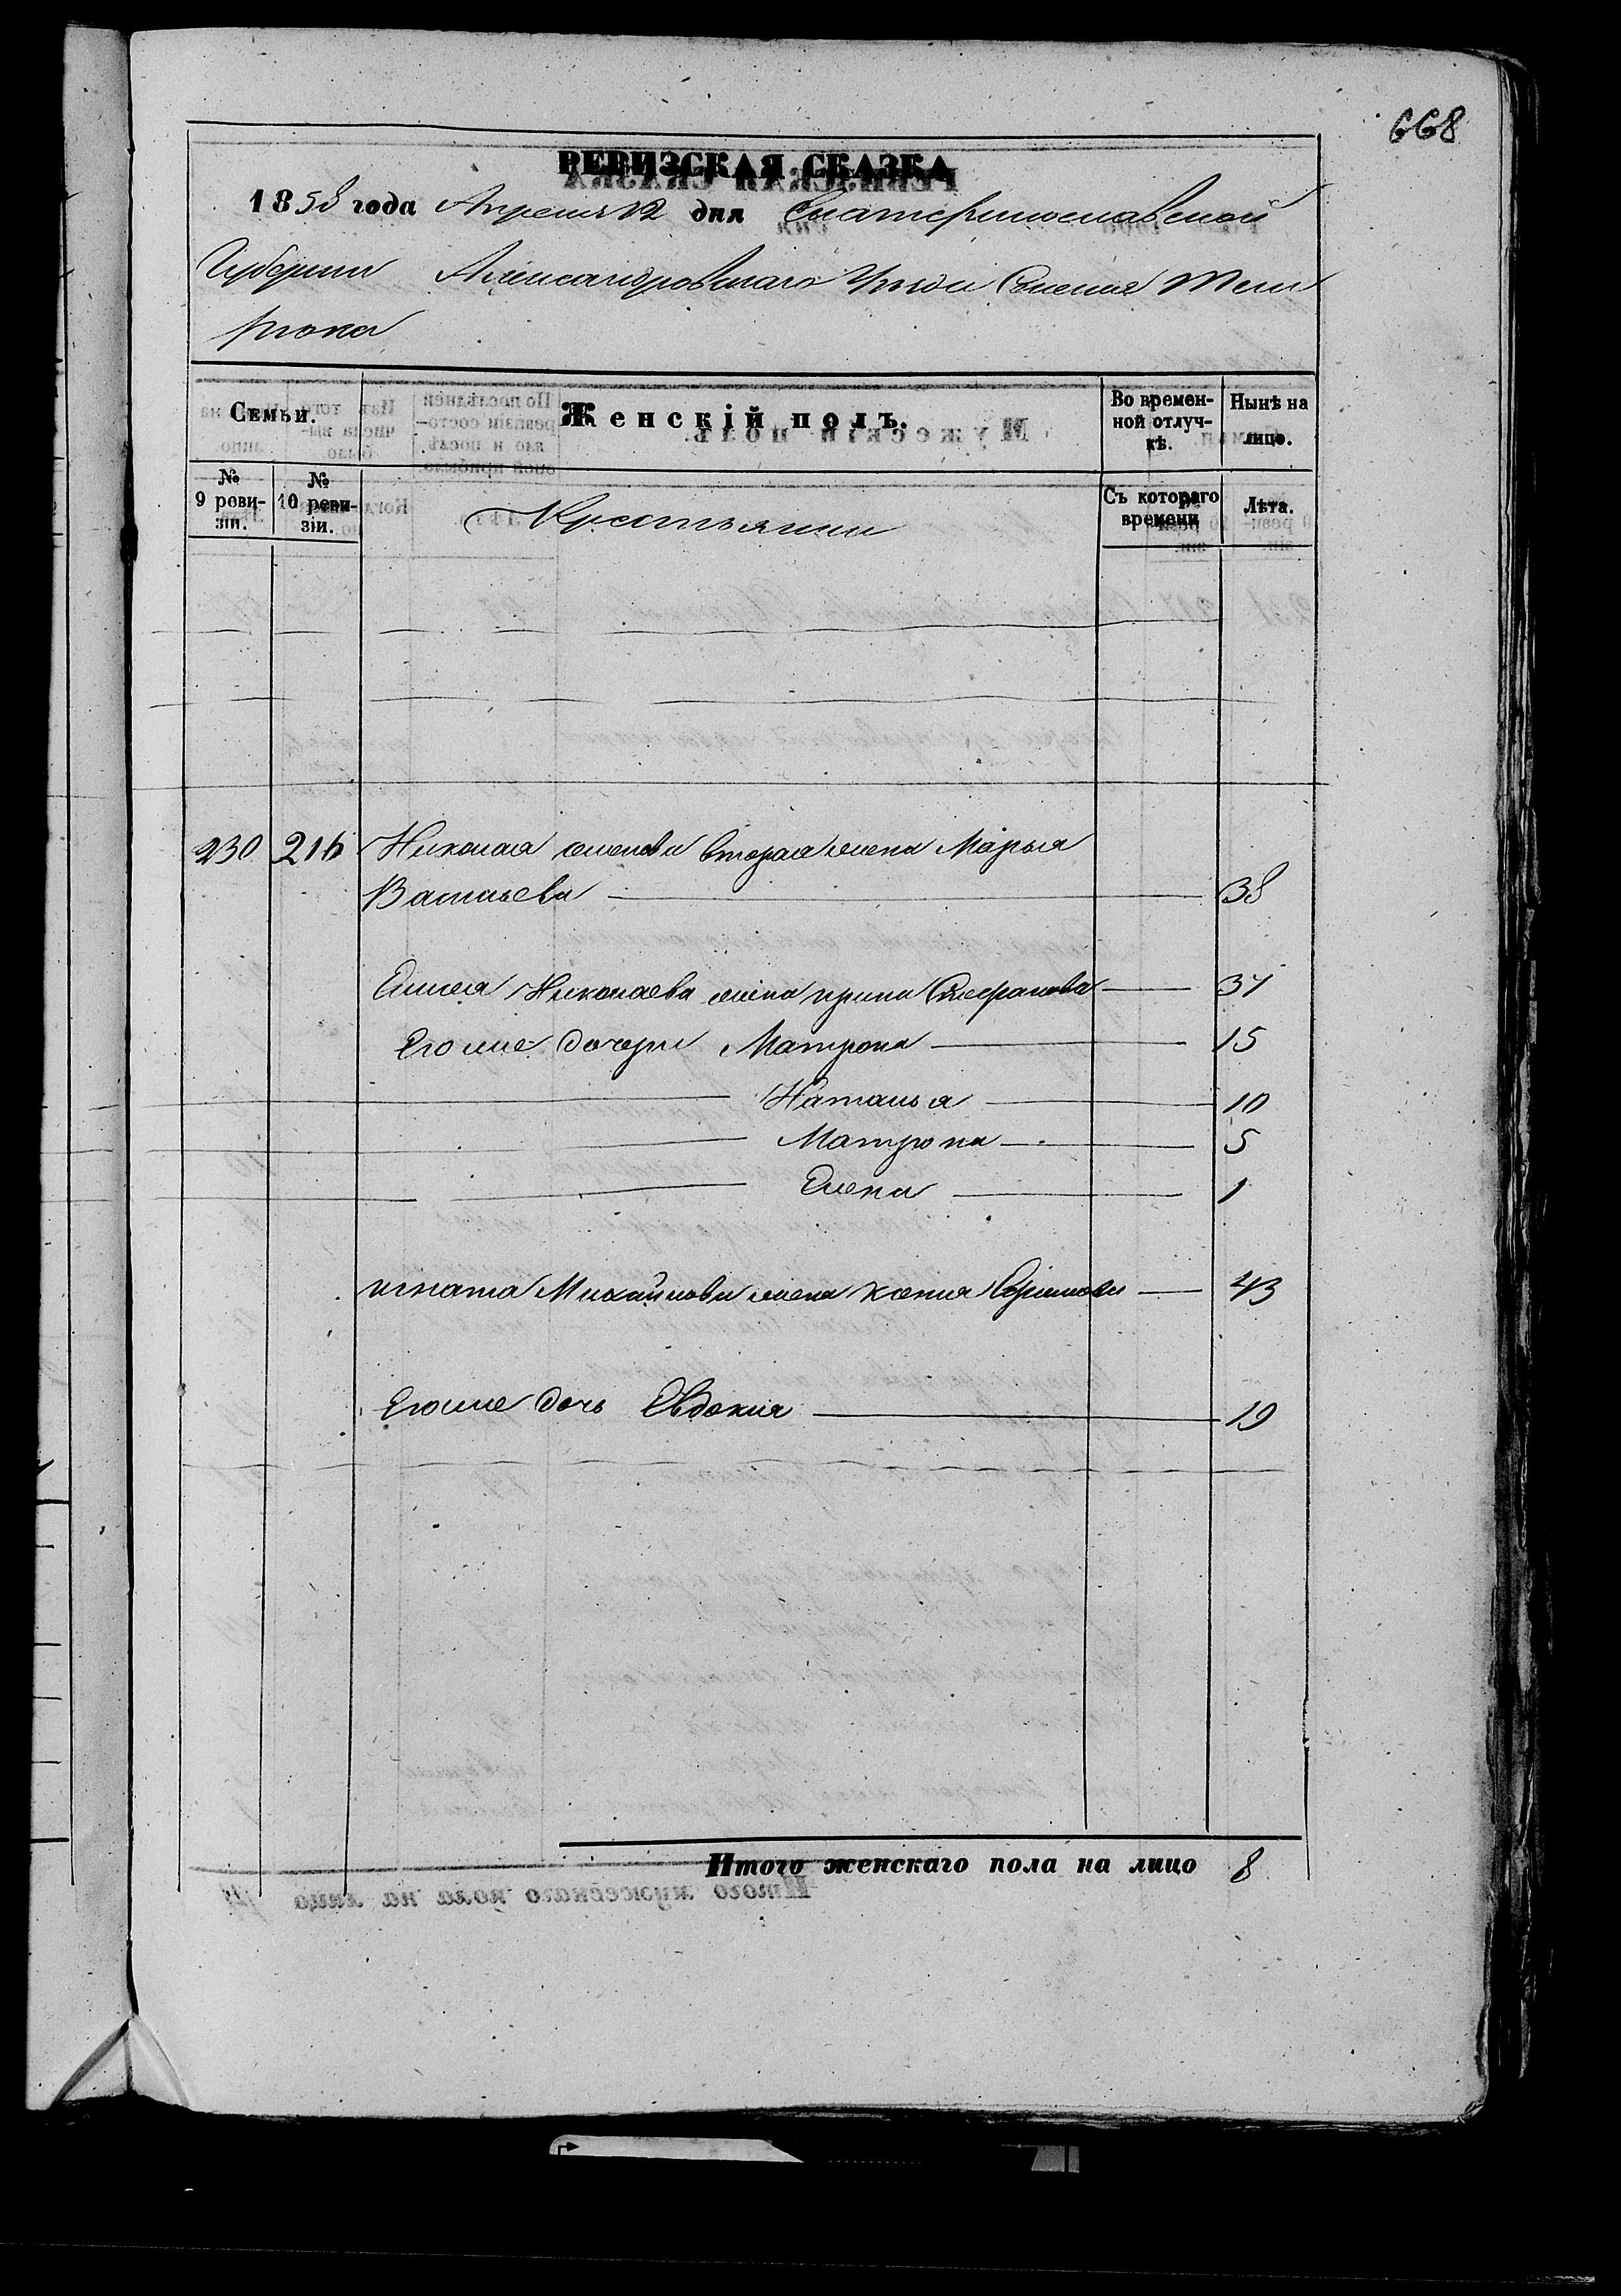 668
РЕВИЗСКАЯ СКАЗКА
1858 года Апреля 12 дня Екатеринославской
Губернии Александровскаго Уезда Селения Тем
рюка
Семьи. Женскій полъ. Во времен-ной отлуч-кѣ. Нынѣ на лицо.
№ 9 реви-зіи. № 10 реви-зіи. Крестьяни Съ котораго времени Лѣта.
230 216 Николая семенова вторая жена Марья
Васильева 38
Елисея Николаева жена ирина Стефанова 37
Его же дочери Матрона 15
Наталья 10
Матрона 5
Елена 1
игната Михайлова жена Ксения 43
Его же дочь Евдокия 19
Итого женскаго пола на лицо 8